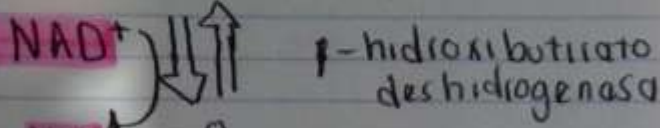 NAD+
1-hidroxibutirato
deshidrogenasa